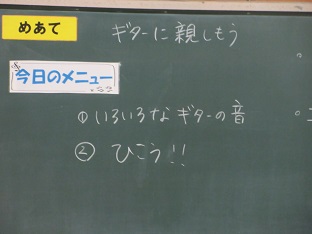 めあて ギターに親しもう
今日のメニュー
①いろいろなギターの音
② ひこう!!